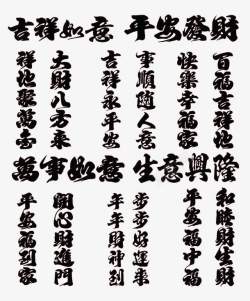 吉祥如意 平安發財
百福吉祥
快樂幸福家
事順隨人意
吉祥永平安
大財八方來
祥地聚萬寶
萬事如意 生意興隆
和睦財生財
平安福中福
步步好運來
年年財神到
開心財進門
平安福到家